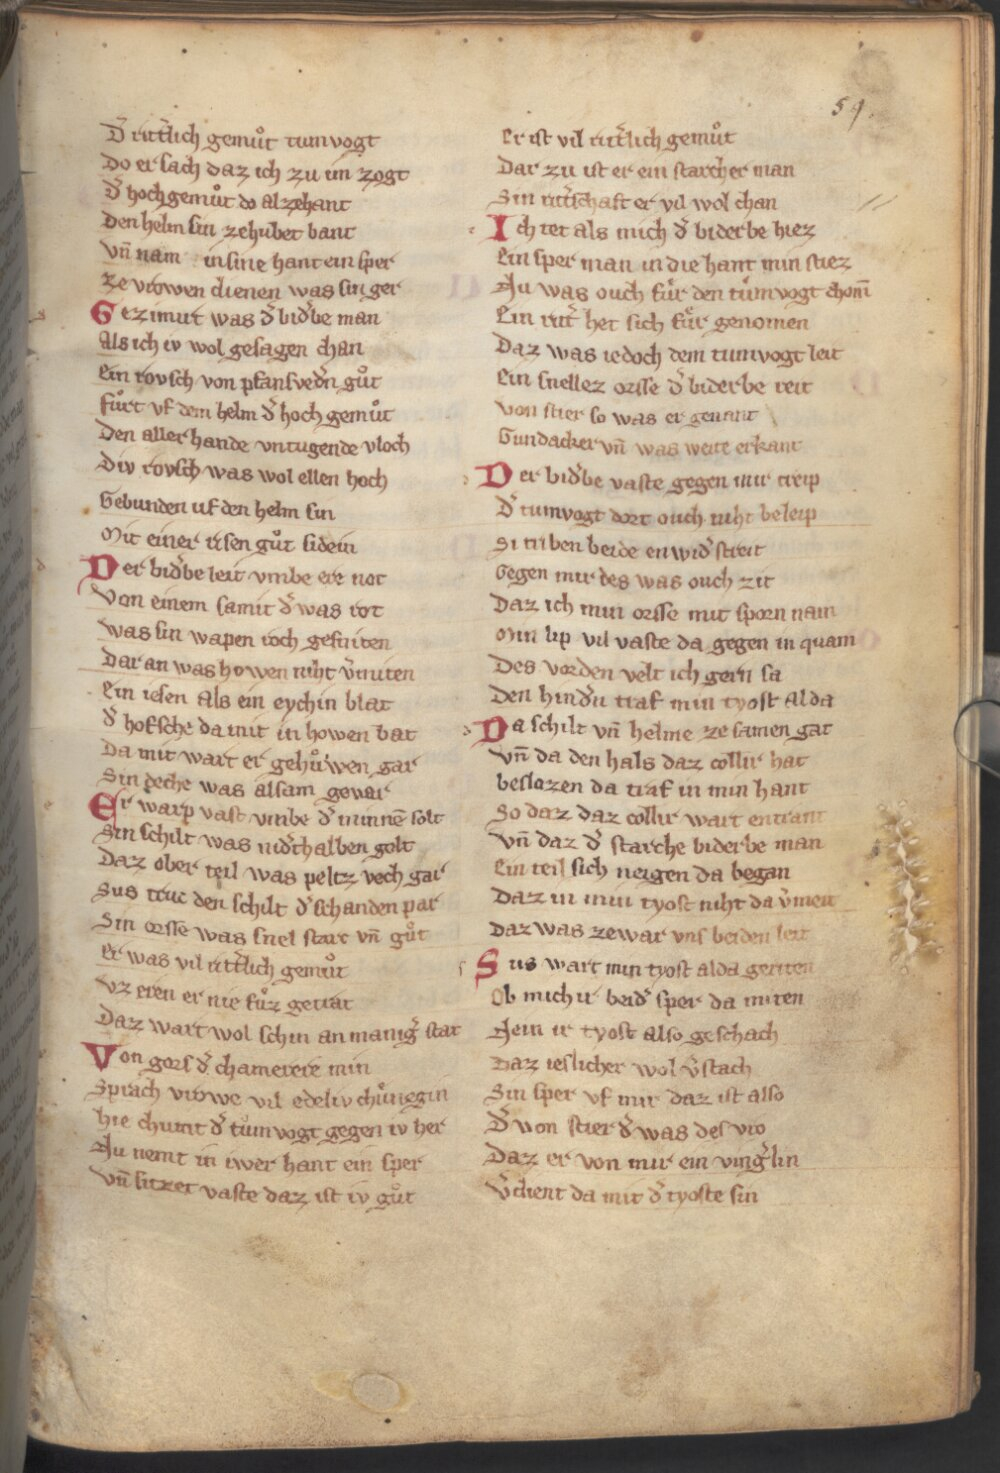 59.
D̾ ritt̾lich gemuͦt tumvogt
Do er sach daz ich zu im zogt
D̾ hochgemuͦt do alzehant
Den helm sin ze hubet bant
Vn̄ nam in sine hant ein sper
Ze vrowen dienen was sin ger
Gezimirt was d̾ bid̾be man
Als ich iv wol gesagen chan
Ein rovsch von pfansved̾n guͦt
Fuͦrt vf dem helm d̾ hoch gemuͦt
Den aller hande vntugende vloch
Div rovsch was wol ellen hoch
Gebunden uf den helm sin
Mit einer risen guͦt sidein
Der bid̾be leit vmbe ere not
Von einem samit d̾ was rot
Was sin wapen roch gesniten
Dar an was howen niht v̾miten
Ein iesen als ein eychin blat
D̾ hofsche da mit in howen bat
Da mit wart er gehuͦwen gar
Sin deche was alsam gevar
Er warp vast vmbe d̾ minnē solt
Sin schilt was nid̾thalben golt
Daz ober teil was peltz vech gar
Sus truc den schilt d̾ schanden par
Sin orsse was snel starc vn̄ guͦt
Er was vil ritt̾lich gemuͦt
Vz eren er nie fuͦz getrat
Daz wart wol schin an manig̾ stat
Von gors d̾ chamerere min
Sprach vrowe vil edeliv chuͦnegin
Hie chumt d̾ tuͦmvogt gegen iv her
Nu nemt in iwer hant ein sper
Vn̄ sitzet vaste daz ist iv guͦt
Er ist vil ritt̾lich gemuͦt
Dar zu ist er ein starcher man
Sin ritt̾schaft er vil wol chan
Ich tet als mich d̾ biderbe hiez
Ein sper man in die hant min stiez
Nu was ouch fuͤr den tuͦmvogt chom̄
Ein ritt̾ het sich fuͤr genomen
Daz was iedoch dem tumvogt leit
Ein snellez orsse d̾ biderbe reit
Von stier so was er genant
Gundacker vn̄ was weite erkant
Der bid̾be vaste gegen mir treip
D̾ tumvogt dort ouch niht beleip
Si triben beide en wid̾ streit
Gegen mir des was ouch zit
Daz ich min orsse mit sporn nam
Min lip vil vaste da gegen in quam
Des vorden velt ich gern sa
Den hind̾n traf min tyost alda
Da schilt vn̄ helme ze samen gat
Vn̄ da den hals daz collir hat
beslozen da traf in min hant
So daz daz collir wart entrant
Vn̄ daz d̾ starche biderbe man
Ein teil sich neigen da began
Daz in min tyost niht da v̾meit
Daz was zewar vns beiden leit
Sus wart min tyost alda geriten
Ob mich ir beid̾ sper da miten
Nein ir tyost also geschach
Daz ieslicher wol v̾stach
Sin sper vf mir daz ist also
D̾ von stier d̾ was des vro
Daz er von mir ein ving̾lin
V̾dient da mit d̾ tyoste sin